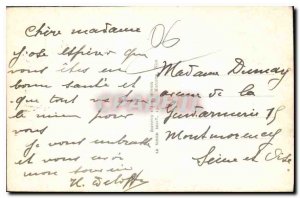 Chère madame
j'ose espérer que
vous êtes en
bonne santé et
que tout va
le mieux pour
vous
je vous embrasse
et vous
mon
H.
06
Madame Dumay
de la
Gendarmerie 15
Montmorency
Seine et Oise